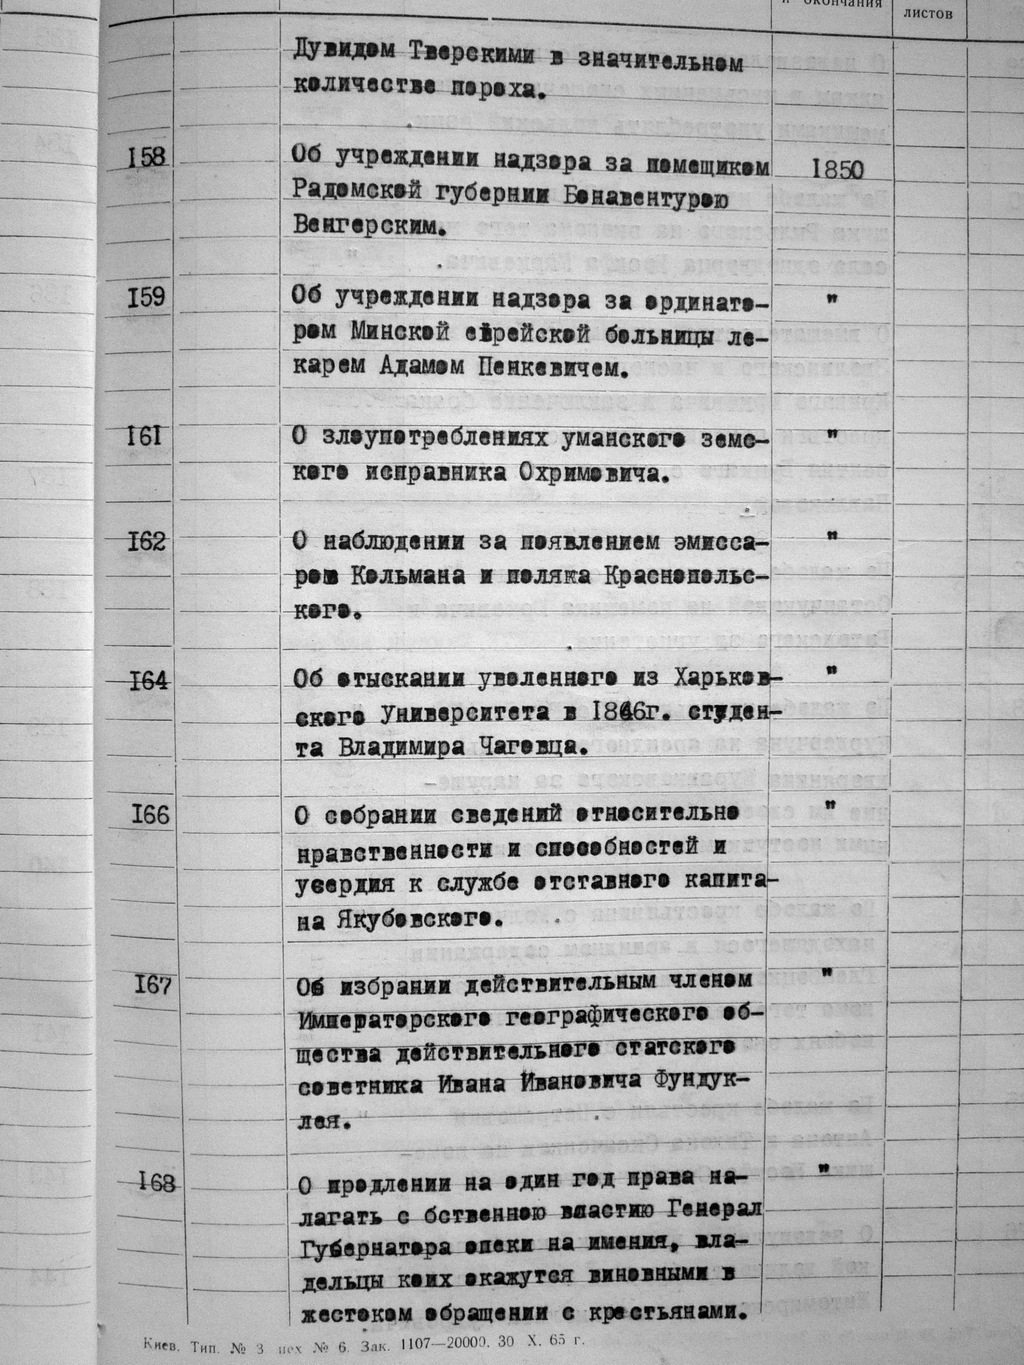 и окончания
листов
Дувидом Тверскими в значительном
количестве пороха.
158 Об учреждении надзора за помещиком 1850
Радомской губернии Бонавентурою
Венгерским.
159 Об учреждении надзора за ордината- "
ром Минской еврейской больницы ле-
карем Адамом Пенкевичем.
161 О злоупотреблениях уманского земс- "
кого исправника Охримовича.
162 О наблюдении за появлением эмисса- "
ров Кольмана и поляка Краснопольс-
кого.
164 Об отыскании уволенного из Харьков- "
ского Университета в 1846г. студен-
та Владимира Чаговца.
166 О собрании сведений относительно "
нравственности и способностей и
усердия к службе отставного капита-
на Якубовского.
167 Об избрании действительным членом "
Императорского географического об-
щества действительного статского
советника Ивана Ивановича Фундук-
лея.
168 О продлении на один год права на- "
лагать с бственною властию Генерал
Губернатора опеки на имения, вла-
дельцы коих окажутся виновными в
жестоком обращении с крестьянами.
Киев. Тип. № 3 цех № 6. Зак. 1107—20000. 30 X. 65 г.